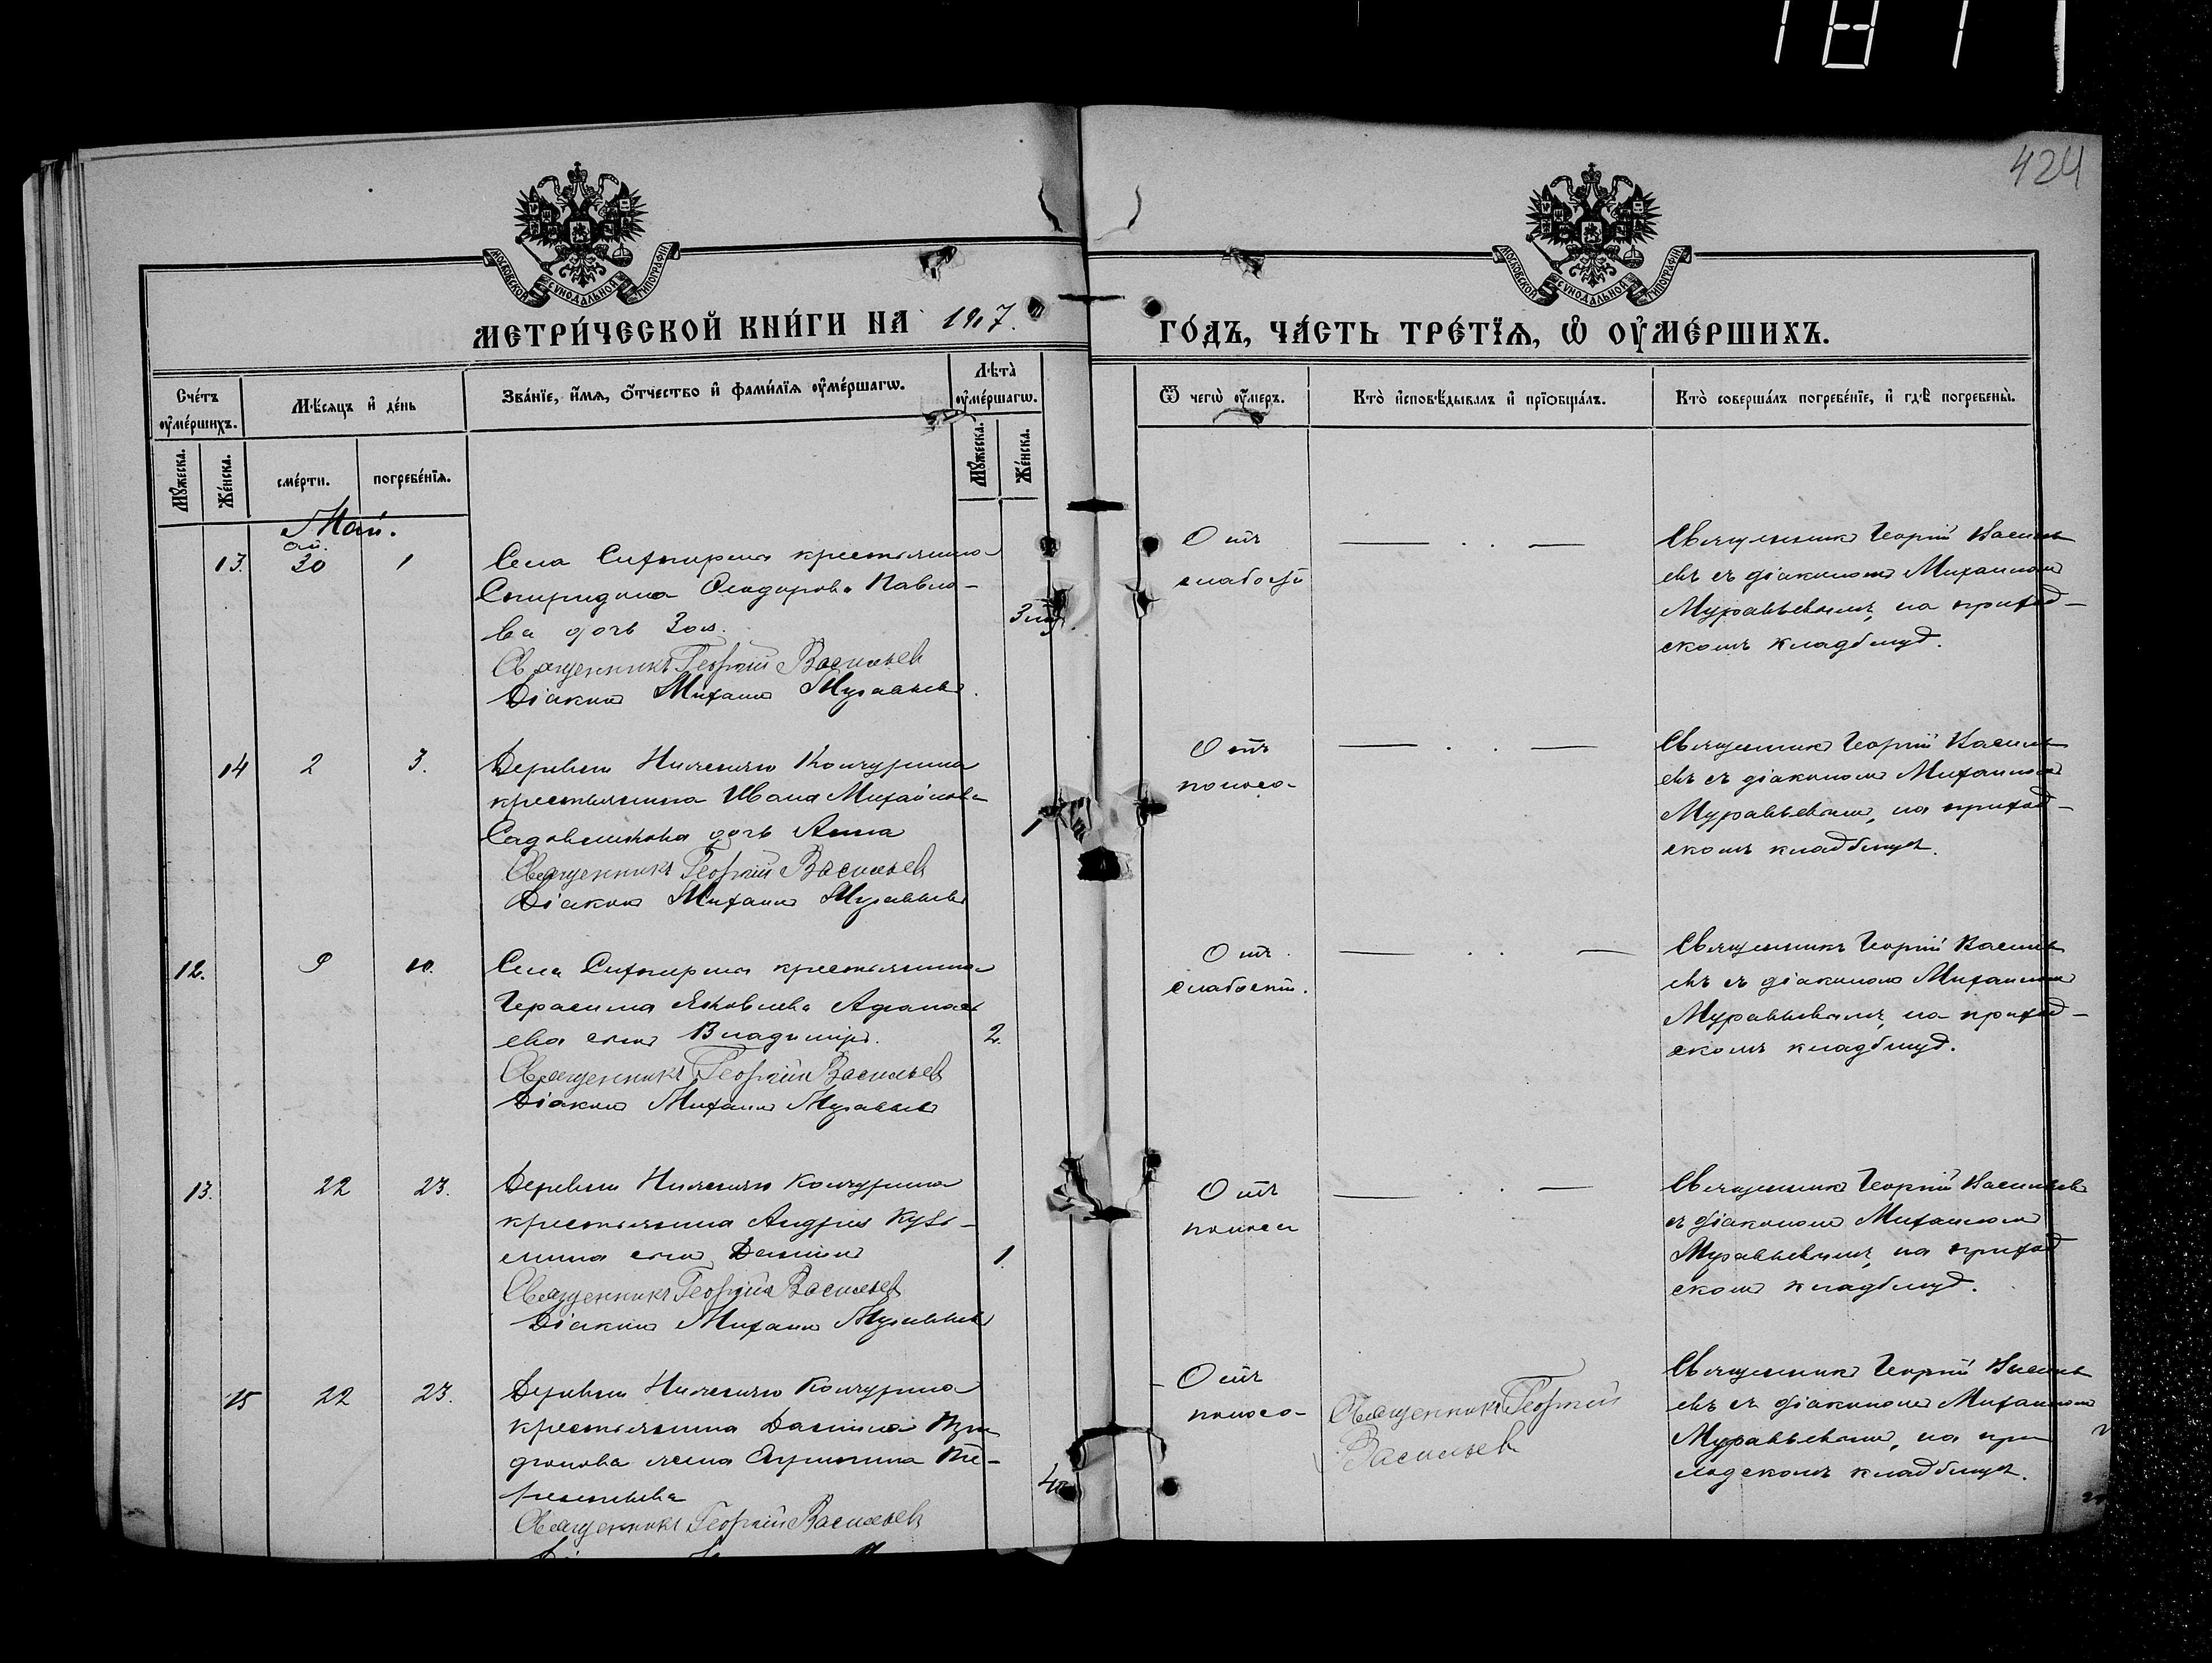 1871
424
МОСКОВСКОЙ СѴНОДАЛЬНОЙ ТИПОГРАФІИ
МОСКОВСКОЙ СѴНОДАЛЬНОЙ ТИПОГРАФІИ
МЕТРИ́ЧЕСКОЙ КНИ́ГИ НА 1917.
ГО́ДЪ, ЧА́СТЬ ТРЕ́ТЇѦ, Ѡ҆ ОУ҆МЕ́РШИХЪ.
Сче́тъ оу҆ме́ршихъ.
Мѣ́сяцъ и҆ де́нь
Зва́нїе, и҆́мѧ, ѻ҆́тчество и҆ фами́лїѧ оу҆ме́ршагѡ.
Лѣ́та оу҆ме́ршагѡ.
Ѿ чегѡ̀ оу҆́меръ.
Кто̀ и҆сповѣ́дывалъ и҆ прїѡбща́лъ.
Кто̀ соверша́лъ погребе́нїе, и҆ гдѣ̀ погребены̀.
Мꙋ́жеска.
Же́нска.
сме́рти.
погребе́нїѧ.
Мꙋ́жеска.
Же́нска.
Май.
13. ап. 30 1
Села крестьянина
Спиридона Ѳеодорова Павло-
ва дочь Зоя.
Священникъ Георгій Васильев
Діаконъ Михаилъ Муравьевъ.
Отъ
слабости
Священникъ Георгій Василь
евъ съ діакономъ Михаиломъ
Муравьевымъ, на приход-
скомъ кладбищѣ.
14 2 3.
Деревни Кончурина
крестьянина Ивана Михайлова
Садовникова дочь Анна 1
Священникъ Георгій Васильев
Діаконъ Михаилъ Муравьевъ
Отъ
поноса
Священникъ Георгій Василь
евъ съ діакономъ Михаиломъ
Муравьевымъ, на приход-
скомъ кладбищѣ.
12. 9 10.
Села крестьянина
Герасима Яковлева Афанась
ева сынъ Владиміръ. 2.
Священникъ Георгій Васильев
Діаконъ Михаилъ Муравьевъ
Отъ
слабости.
Священникъ Георгій Василь
евъ съ діакономъ Михаиломъ
Муравьевымъ, на приход-
скомъ кладбищѣ.
13. 22 23.
Деревни Кончурина
крестьянина Андрея Кузь-
мина сынъ 1.
Священникъ Георгій Васильев
Діаконъ Михаилъ Муравьевъ
Отъ
поноса
Священникъ Георгій Васильевъ
съ діакономъ Михаиломъ
Муравьевымъ, на приход
скомъ кладбищѣ.
15 22 23.
Деревни Кончурина
крестьянина Даніила
жена
Священникъ Георгій Васильев
Отъ
поноса
Священникъ Георгій
Васильев
Священникъ Георгій Василь
евъ съ діакономъ Михаиломъ
Муравьевымъ, на при
ходскомъ кладбищѣ.